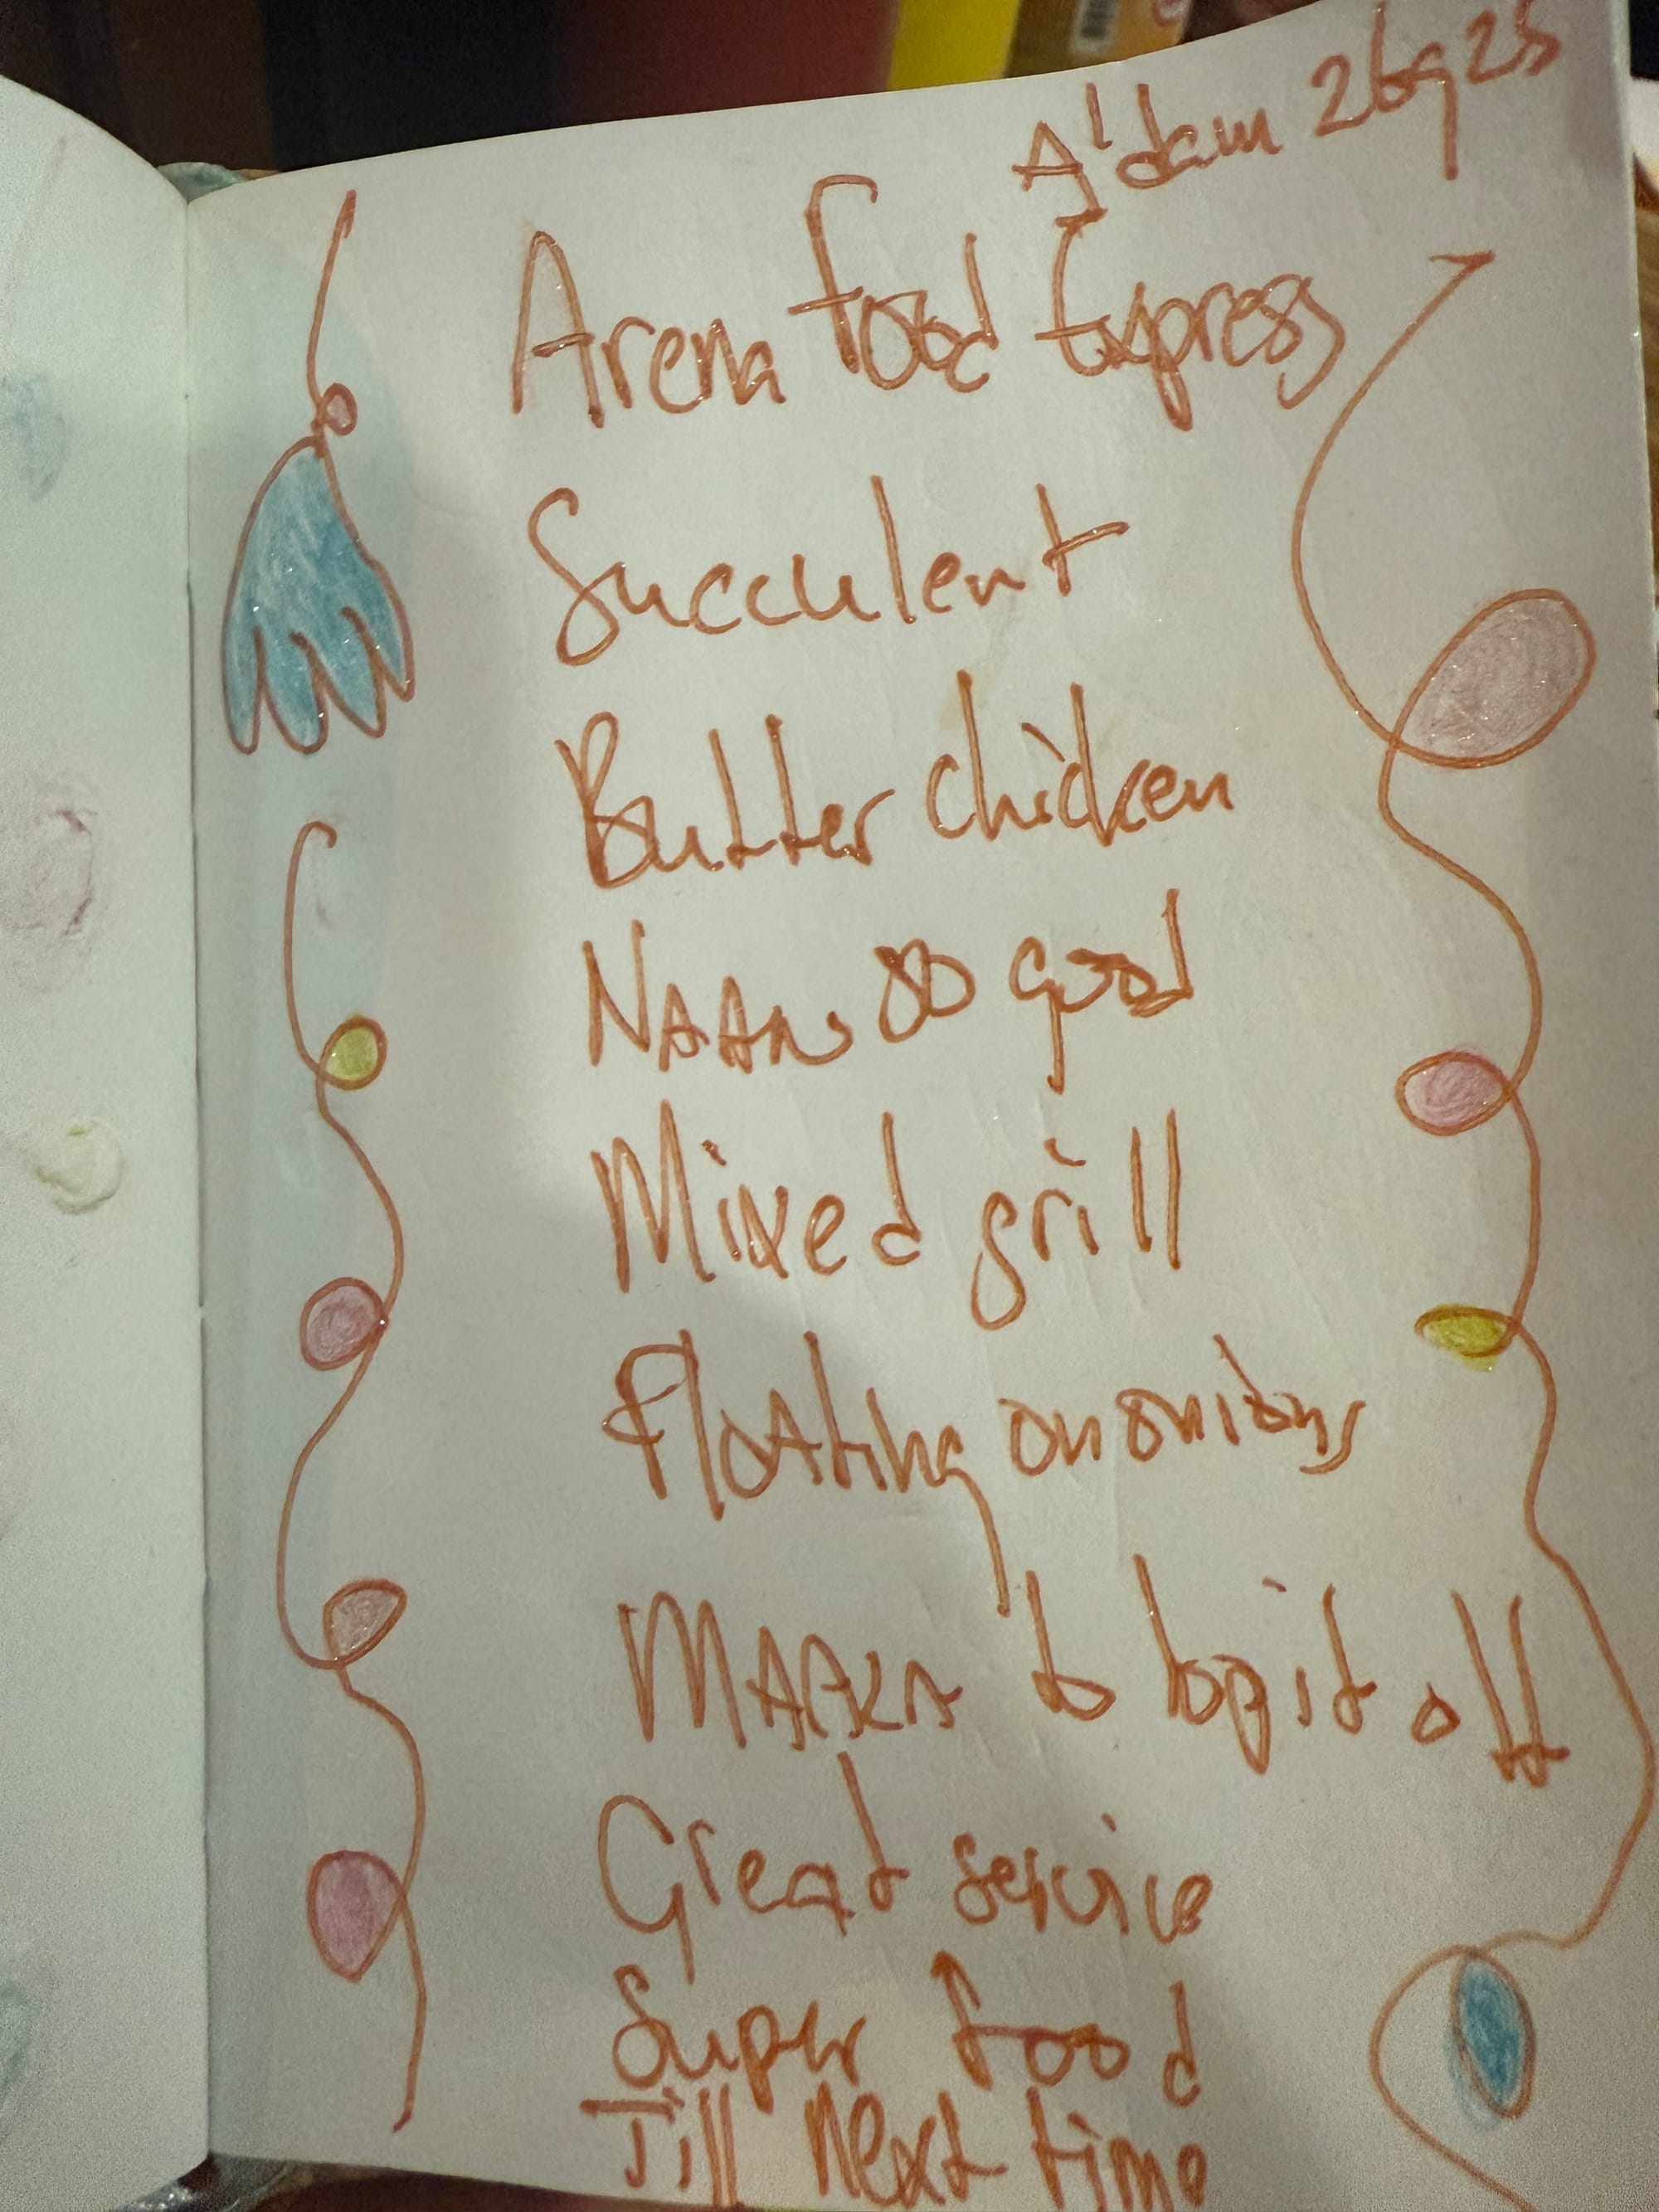 A'dam 26925
Arena food Express
Succulent
Butter chicken
NAAN so good
Mixed grill
Floating on onions
to top it off
Great service
Super food
Till next time